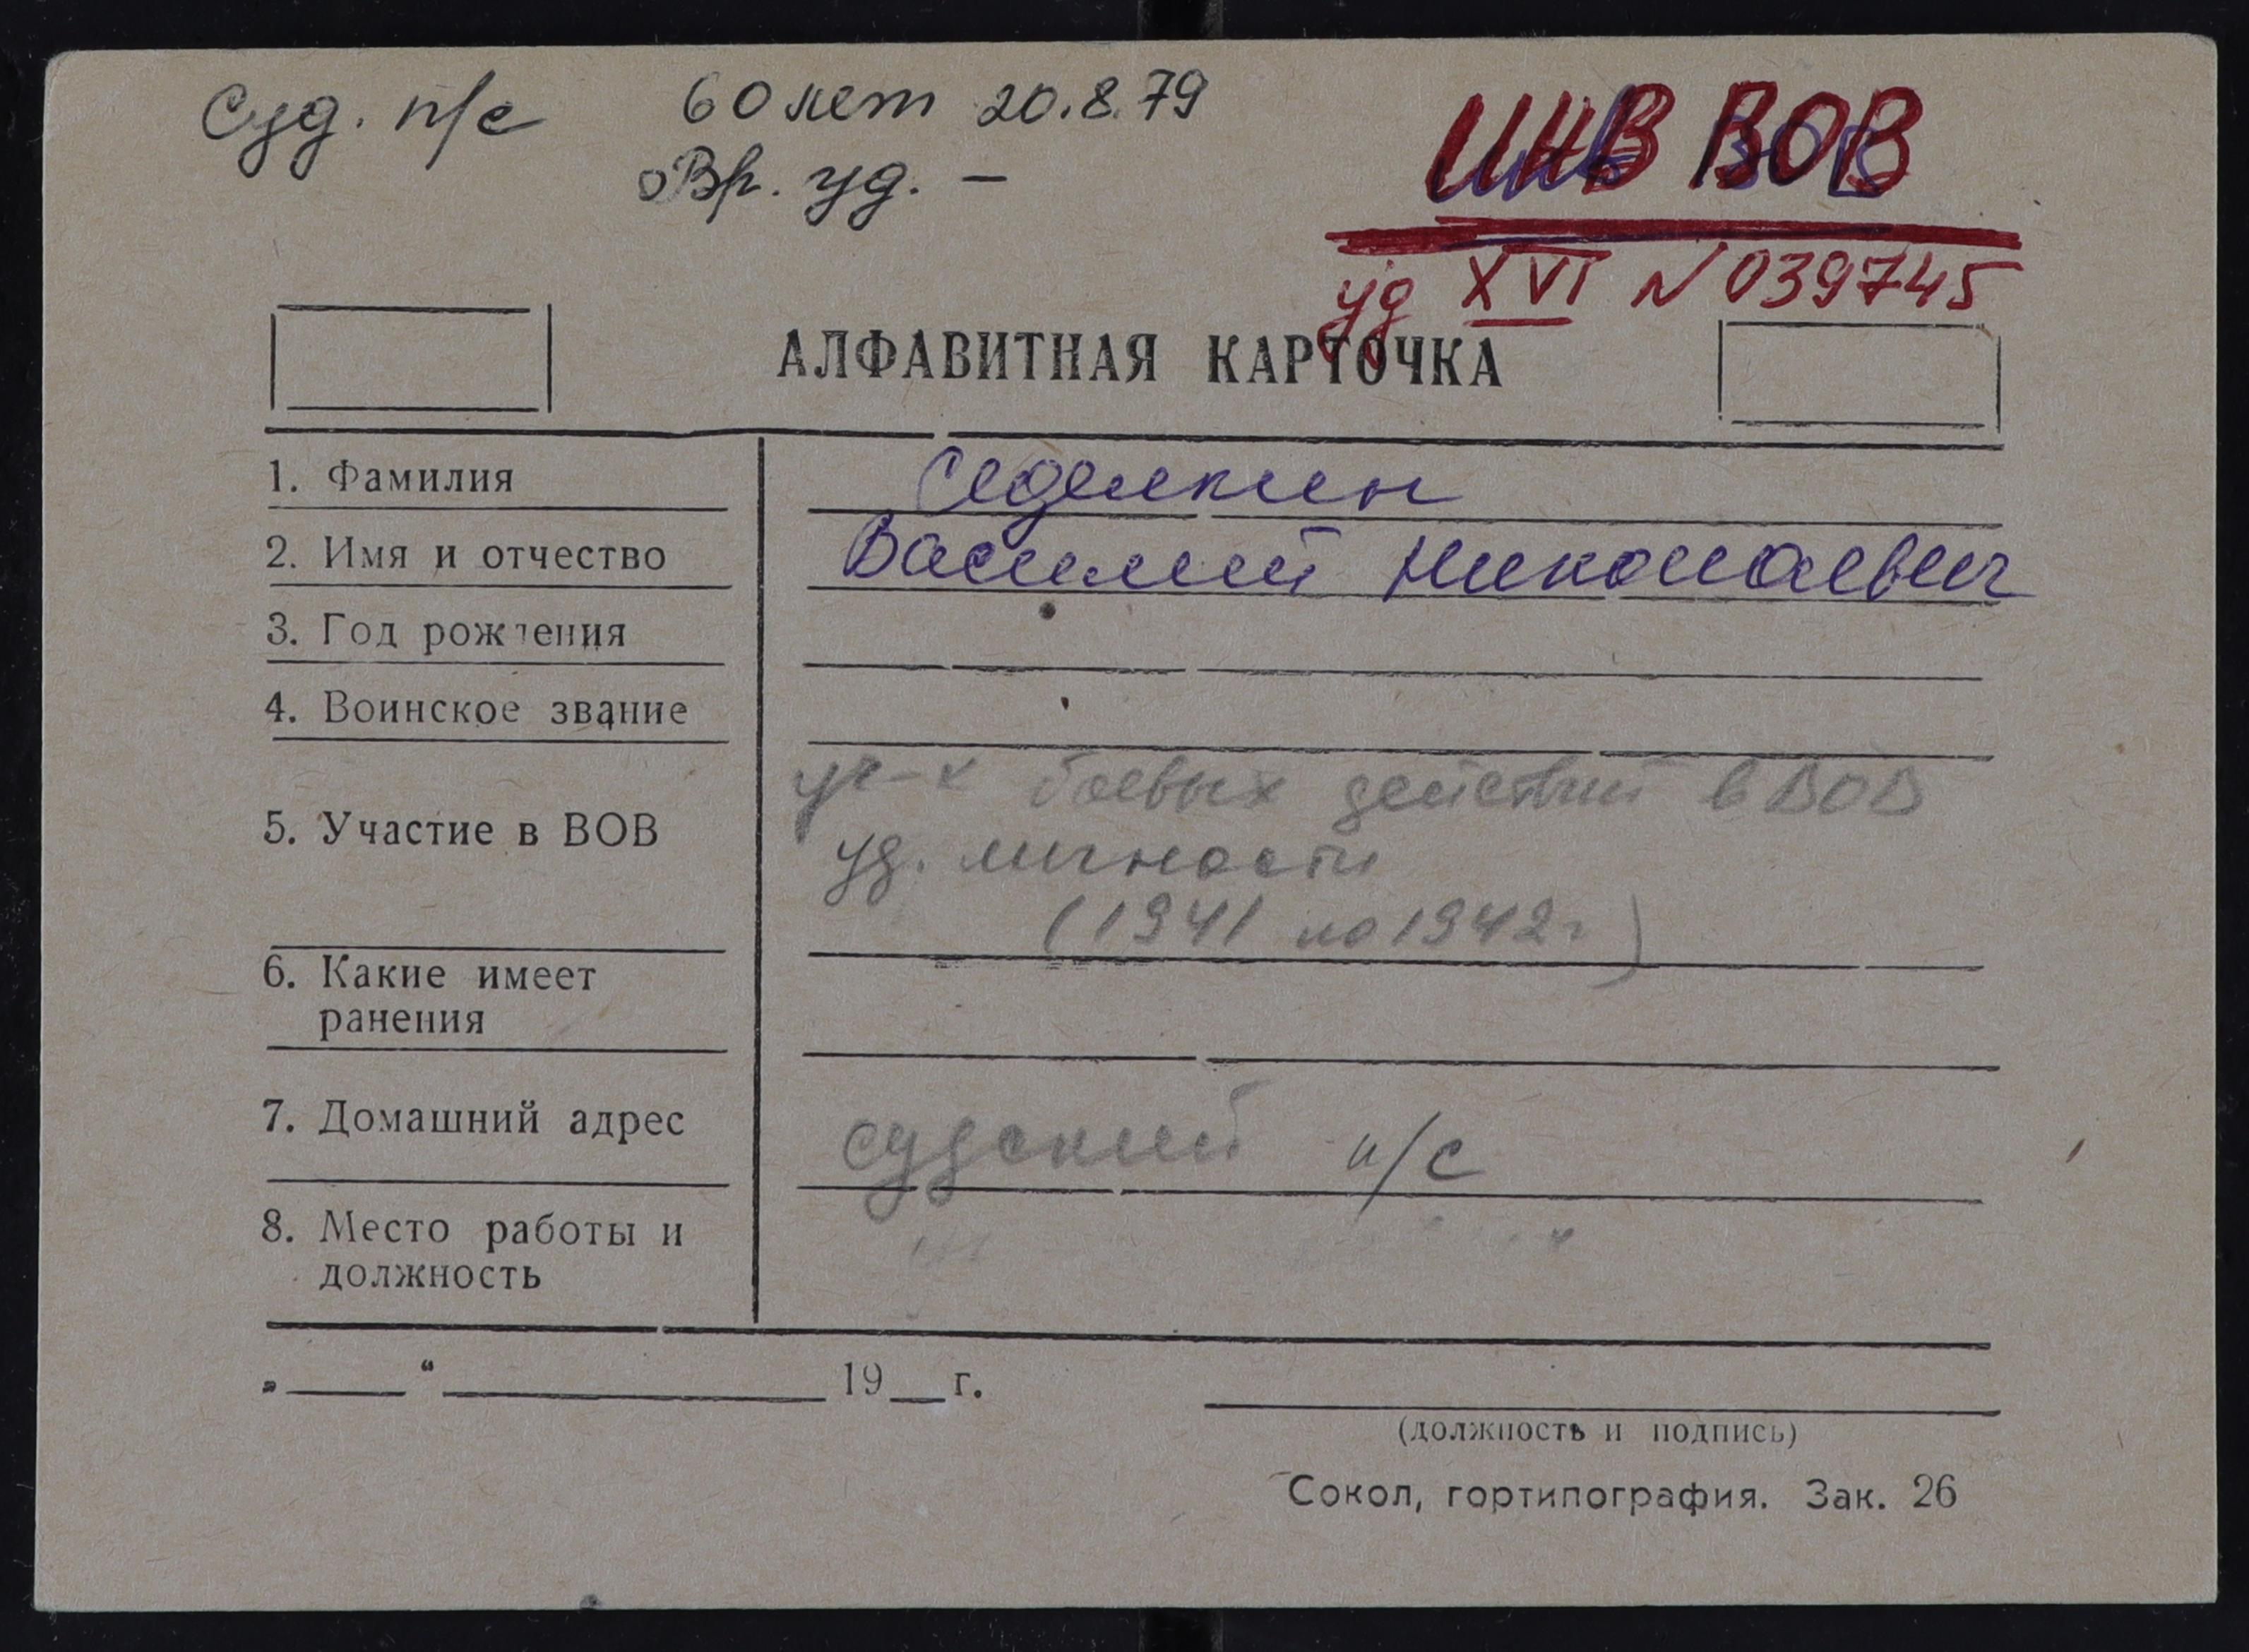 Суд. п/с 60 лет 20.8.79 ИНВ ВОВ
Вр. уд. –
уд XVI N 039745
АЛФАВИТНАЯ КАРТОЧКА
1. Фамилия Седелкин
2. Имя и отчество Василий Николаевич
3. Год рождения
4. Воинское звание
5. Участие в ВОВ уч-к боевых действий в ВОВ
уд. личности
(1941 по 1942 г.)
6. Какие имеет
ранения
7. Домашний адрес судский п/с
8. Место работы и
должность
„ “ 19 г.
(должность и подпись)
Сокол, гортипография. Зак. 26